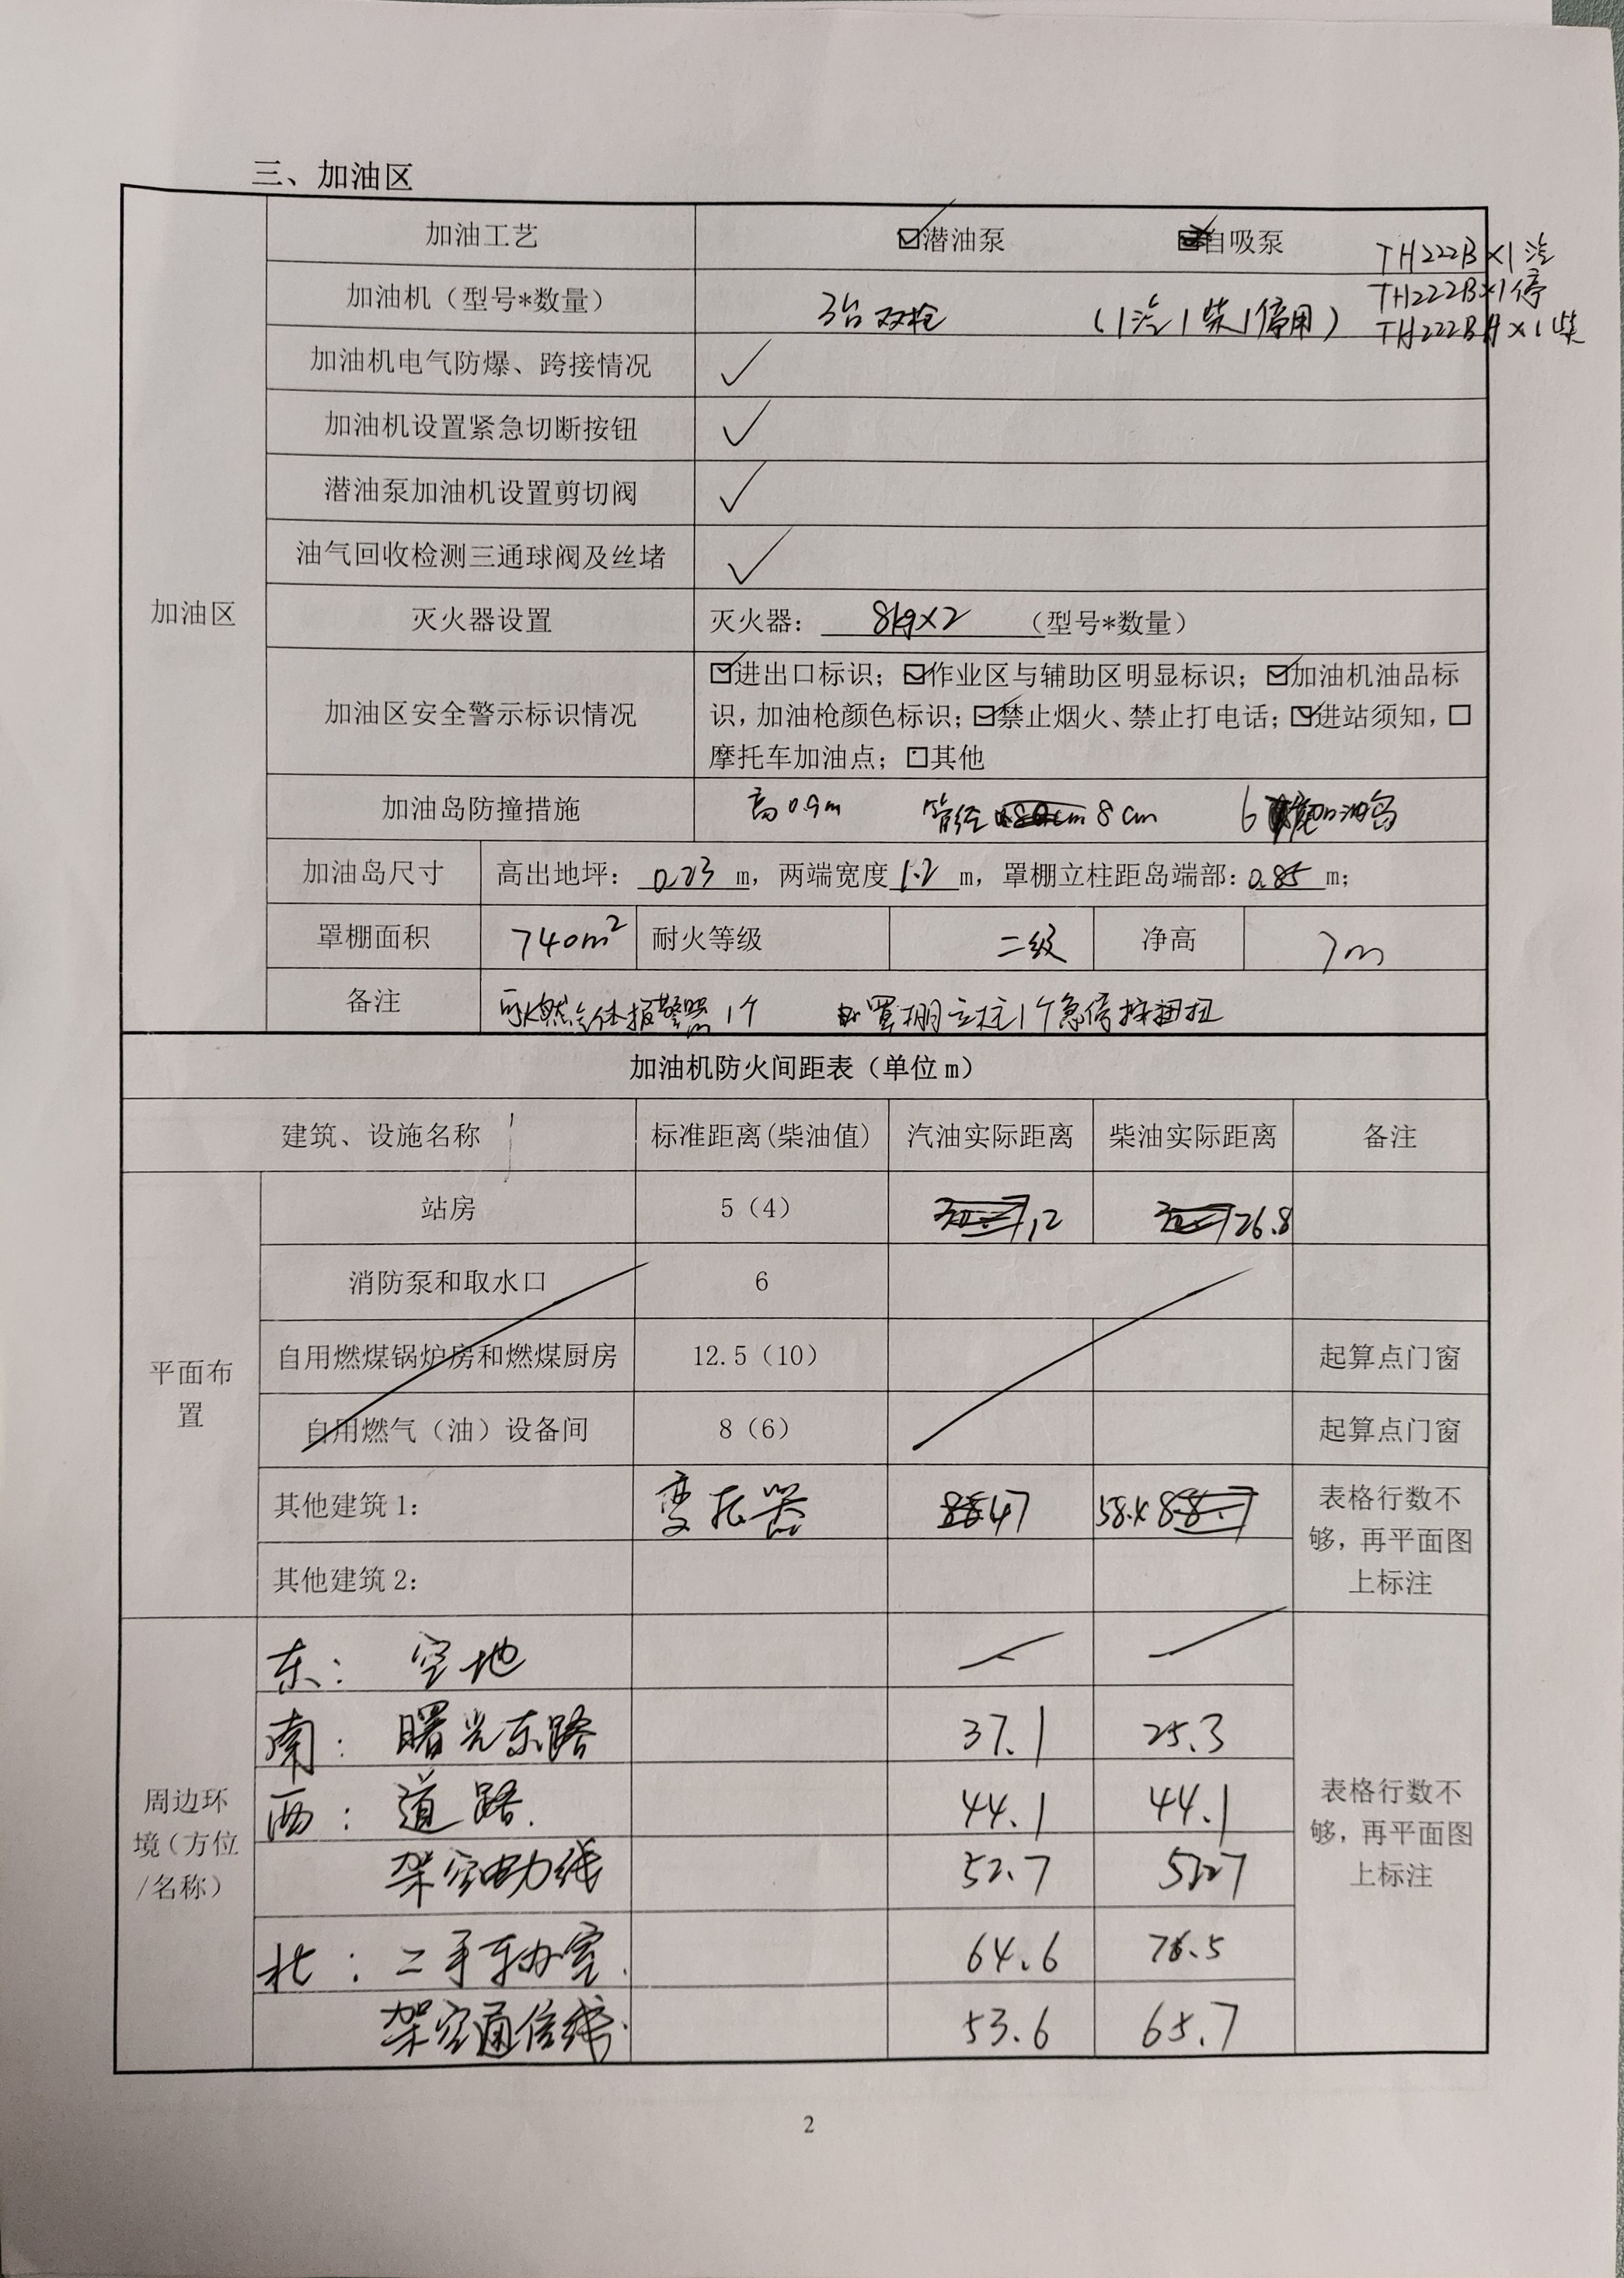 三、加油区
加油区
加油工艺 ☑潜油泵 自吸泵
TH222B×1 汽
加油机（型号*数量） 3台双枪 （1汽1柴1停用）
TH222B×1停
×1柴
加油机电气防爆、跨接情况 ✓
加油机设置紧急切断按钮 ✓
潜油泵加油机设置剪切阀 ✓
油气回收检测三通球阀及丝堵 ✓
灭火器设置 灭火器： 8kg×2 （型号*数量）
加油区安全警示标识情况
☑进出口标识；☑作业区与辅助区明显标识；☑加油机油品标
识，加油枪颜色标识；☑禁止烟火、禁止打电话；☑进站须知，☐
摩托车加油点；☐其他
加油岛防撞措施 高0.9m 管径 8cm 6 加油岛
加油岛尺寸 高出地坪： m，两端宽度 1.2 m，罩棚立柱距岛端部： 0.85 m；
罩棚面积 740m² 耐火等级 二级 净高 7m
备注 可燃气体报警器1个 罩棚立柱1个急停按扭
加油机防火间距表（单位m）
建筑、设施名称 标准距离(柴油值) 汽油实际距离 柴油实际距离 备注
平面布
置
站房 5（4） 12 26.8
消防泵和取水口 6
自用燃煤锅炉房和燃煤厨房 12.5（10） 起算点门窗
自用燃气（油）设备间 8（6） 起算点门窗
其他建筑1： 变压器 47
其他建筑2：
表格行数不
够，再平面图
上标注
周边环
境（方位
/名称）
东： 空地
南： 曙光东路 37.1 25.3
西： 道路. 44.1 44.1
架空电力线 52.7 52.7
北： 二手车办室. 64.6
架空通信线. 53.6 65.7
表格行数不
够，再平面图
上标注
2